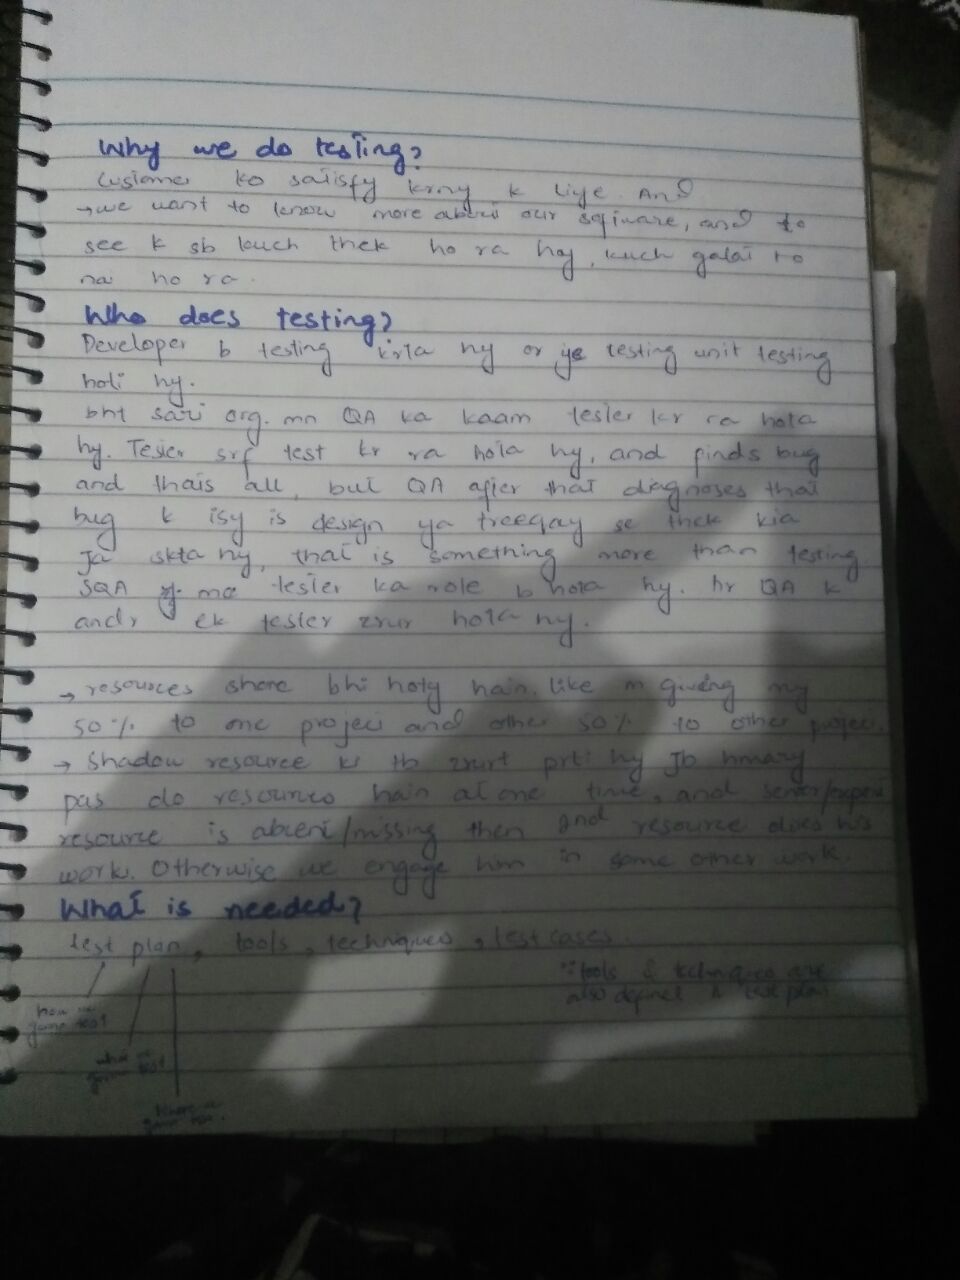 Why we do testing?
Customer ko satisfy krny k liye. And
→ we want to know more about our software, and to
see k sb kuch theek ho ra hy, kuch galat to
nai ho ra.
Who does testing?
Developer b testing krta hy or ye testing unit testing
hoti hy.
bht sari org. mn QA ka kaam tester kr ra hota
hy. Tester srf test kr ra hota hy, and finds bug
and thats all, but QA after that diagnoses that
bug k isy is design ya treeqay se theek kia
ja skta hy, that is something more than testing
SQA mn tester ka role b hota hy. hr QA k
andr ek tester zrur hota hy.
→ resources share bhi hoty hain. like m giving my
50% to one project and other 50% to other project.
→ shadow resource ki tb zrurt prti hy Jb hmary
pas do resources hain at one time, and senior/
resource is absent/missing then 2nd resource does his
work. Otherwise we engage him in some other work.
What is needed?
test plan, tools, techniques, test cases
tools & techniques are
also defined in test plan